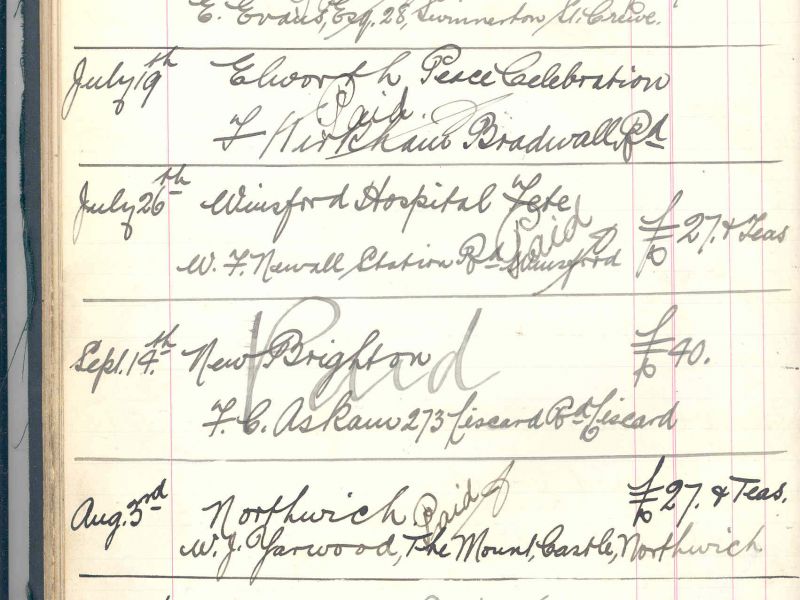 E. Evans, Esq. 28, Swinnerton St. Crewe.
July 19th Elworth Peace Celebration
Paid.
F Kirkham Bradwall Rd
July 26th Winsford Hospital Fete
Paid
W. F. Newall Station Rd Winsford £27. & Teas
Sept. 14th New Brighton £40.
Paid
F. C. Askam 273 Liscard Rd Liscard
Aug. 3rd Northwich Paid £27. & Teas.
W. J. Yarwood, The Mount, Castle, Northwich